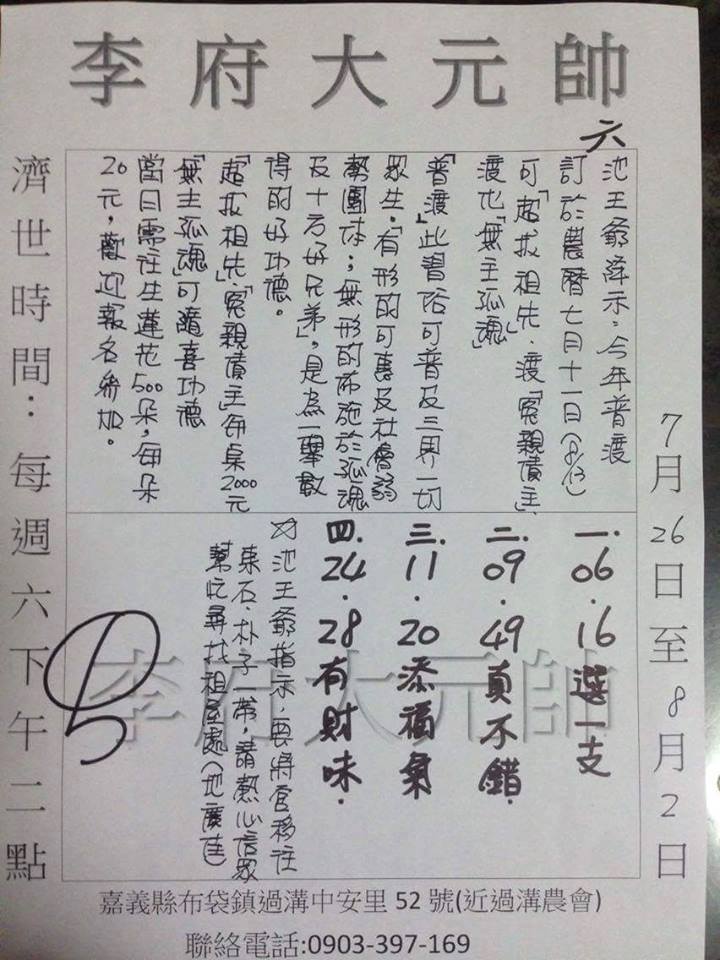 李府大元帥
7月26日至8月2日
六池王爺降示,今年普渡
訂於農曆七月十一日(8/13)
可「超拔祖先、渡「冤親債主」、
渡化「無主孤魂」
「普渡」此習俗可普及三界一切
眾生,「有形的可惠及社會弱
勢團体;無形的布施於孤魂
及十方好兄弟」,是為一舉數
得的好功德。
「超拔祖先、「冤親債主」每桌2000元
「無主孤魂」可隨喜功德
當日需往生蓮花500朵,每朵
20元,歡迎報名參加。
一.06.16選一支
二.09.49真不錯.
三.11.20添福氣
四.24.28有財味.
池王爺指示,要將宮移往
東石.朴子一帶,請熱心信眾
幫忙尋找祖屋處(地廣佳)
李府大元帥
濟世時間:每週六下午二點
嘉義縣布袋鎮過溝中安里 52 號(近過溝農會)
聯絡電話:0903-397-169